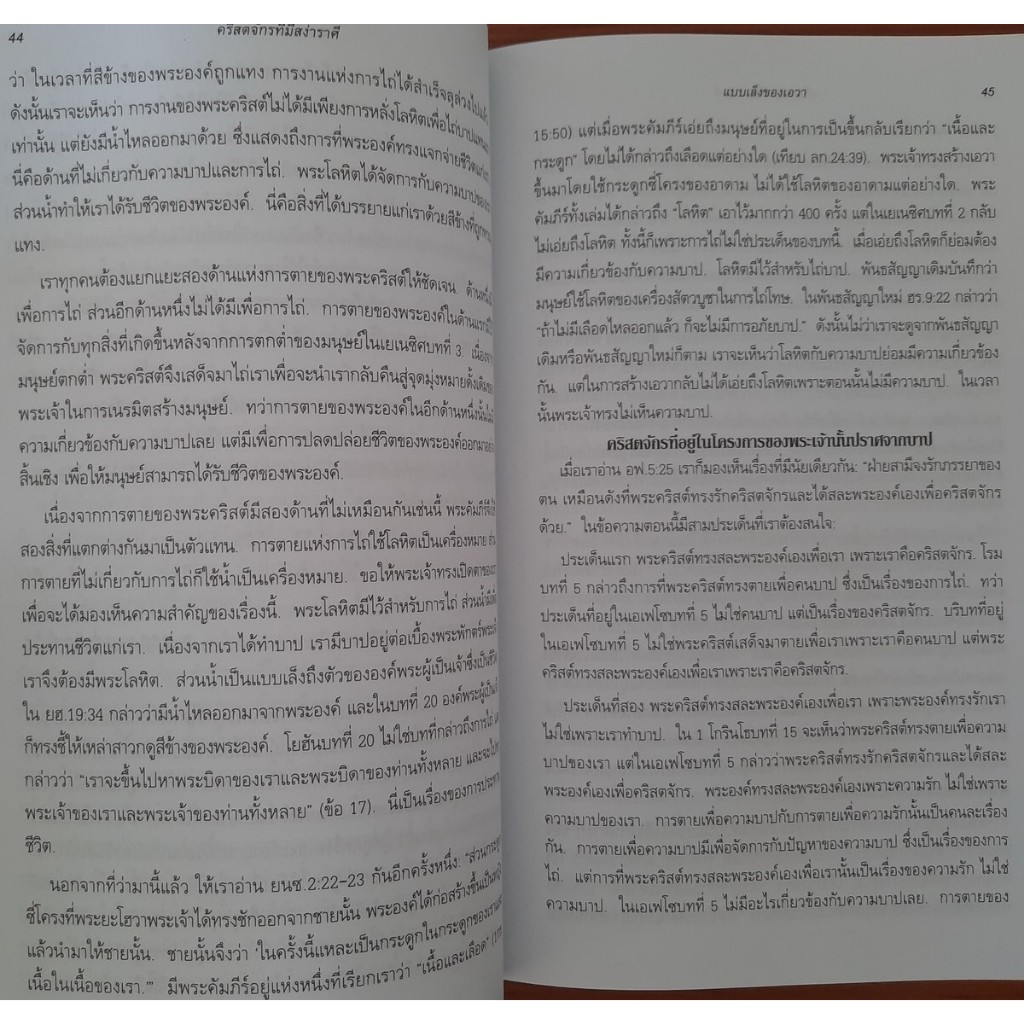 44
คริสตจักรที่มีสง่าราศี
ว่า ในเวลาที่สีข้างของพระองค์ถูกแทง การงานแห่งการไถ่ได้สำเร็จลุล่วงไปแล้ว
ดังนั้นเราจะเห็นว่า การงานของพระคริสต์ไม่ได้มีเพียงการหลั่งโลหิตเพื่อไถ่บาป
เท่านั้น แต่ยังมีน้ำไหลออกมาด้วย ซึ่งแสดงถึงการที่พระองค์ทรงแจกจ่ายชีวิต
นี่คือด้านที่ไม่เกี่ยวกับความบาปและการไถ่. พระโลหิตได้จัดการกับความบาปของ
ส่วนน้ำทำให้เราได้รับชีวิตของพระองค์. นี่คือสิ่งที่ได้บรรยายแก่เราด้วยสีข้างที่ถูก
แทง.
เราทุกคนต้องแยกแยะสองด้านแห่งการตายของพระคริสต์ให้ชัดเจน. ด้านหนึ่ง
เพื่อการไถ่ ส่วนอีกด้านหนึ่งไม่ได้มีเพื่อการไถ่. การตายของพระองค์ในด้านแรก
จัดการกับทุกสิ่งที่เกิดขึ้นหลังจากการตกต่ำของมนุษย์ในเยเนซิศบทที่ 3.
มนุษย์ตกต่ำ พระคริสต์จึงเสด็จมาไถ่เราเพื่อจะนำเรากลับคืนสู่จุดมุ่งหมายดั้งเดิม
พระเจ้าในการเนรมิตสร้างมนุษย์. ทว่าการตายของพระองค์ในอีกด้านหนึ่งนั้น
ความเกี่ยวข้องกับความบาปเลย แต่มีเพื่อการปลดปล่อยชีวิตของพระองค์ออกมา
สิ้นเชิง เพื่อให้มนุษย์สามารถได้รับชีวิตของพระองค์.
เนื่องจากการตายของพระคริสต์มีสองด้านที่ไม่เหมือนกันเช่นนี้ พระคัมภีร์จึง
สองสิ่งที่แตกต่างกันมาเป็นตัวแทน. การตายแห่งการไถ่ใช้โลหิตเป็นเครื่องหมาย ส่วน
การตายที่ไม่เกี่ยวกับการไถ่ก็ใช้น้ำเป็นเครื่องหมาย. ขอให้พระเจ้าทรงเปิดตาของ
เพื่อจะได้มองเห็นความสำคัญของเรื่องนี้. พระโลหิตมีไว้สำหรับการไถ่ ส่วนน้ำ
ประทานชีวิตแก่เรา. เนื่องจากเราได้ทำบาป เรามีบาปอยู่ต่อเบื้องพระพักตร์พระเจ้า
เราจึงต้องมีพระโลหิต. ส่วนน้ำเป็นแบบเล็งถึงตัวขององค์พระผู้เป็นเจ้าซึ่งเป็นชีวิต
ใน ยฮ.19:34 กล่าวว่ามีน้ำไหลออกมาจากพระองค์ และในบทที่ 20 องค์พระผู้เป็นเจ้า
ก็ทรงชี้ให้เหล่าสาวกดูสีข้างของพระองค์. โยฮันบทที่ 20 ไม่ใช่บทที่กล่าวถึงการไถ่
กล่าวว่า “เราจะขึ้นไปหาพระบิดาของเราและพระบิดาของท่านทั้งหลาย และจะไปหา
พระเจ้าของเราและพระเจ้าของท่านทั้งหลาย” (ข้อ 17). นี่เป็นเรื่องของการประทาน
ชีวิต.
นอกจากที่ว่ามานี้แล้ว ให้เราอ่าน ยนซ.2:22-23 กันอีกครั้งหนึ่ง: “ส่วนกระดูก
ซี่โครงที่พระยะโฮวาพระเจ้าได้ทรงชักออกจากชายนั้น พระองค์ได้ก่อสร้างขึ้นเป็นหญิง
แล้วนำมาให้ชายนั้น. ชายนั้นจึงว่า ‘ในครั้งนี้แหละเป็นกระดูกในกระดูกของเรา
เนื้อในเนื้อของเรา.’” มีพระคัมภีร์อยู่แห่งหนึ่งที่เรียกเราว่า “เนื้อและเลือด”
แบบเล็งของเอวา
45
15:50) แต่เมื่อพระคัมภีร์เอ่ยถึงมนุษย์ที่อยู่ในการเป็นขึ้นกลับเรียกว่า “เนื้อและ
กระดูก” โดยไม่ได้กล่าวถึงเลือดแต่อย่างใด (เทียบ ลก.24:39). พระเจ้าทรงสร้างเอวา
ขึ้นมาโดยใช้กระดูกซี่โครงของอาดาม ไม่ได้ใช้โลหิตของอาดามแต่อย่างใด. พระ
คัมภีร์ทั้งเล่มได้กล่าวถึง “โลหิต” เอาไว้มากกว่า 400 ครั้ง แต่ในเยเนซิศบทที่ 2 กลับ
ไม่เอ่ยถึงโลหิต ทั้งนี้ก็เพราะการไถ่ไม่ใช่ประเด็นของบทนี้. เมื่อเอ่ยถึงโลหิตก็ย่อมต้อง
มีความเกี่ยวข้องกับความบาป. โลหิตมีไว้สำหรับไถ่บาป. พันธสัญญาเดิมบันทึกว่า
มนุษย์ใช้โลหิตของเครื่องสัตวบูชาในการไถ่โทษ. ในพันธสัญญาใหม่ ฮร.9:22 กล่าวว่า
“ถ้าไม่มีเลือดไหลออกแล้ว ก็จะไม่มีการอภัยบาป.” ดังนั้นไม่ว่าเราจะดูจากพันธสัญญา
เดิมหรือพันธสัญญาใหม่ก็ตาม เราจะเห็นว่าโลหิตกับความบาปย่อมมีความเกี่ยวข้อง
กัน. แต่ในการสร้างเอวากลับไม่ได้เอ่ยถึงโลหิตเพราะตอนนั้นไม่มีบาป. ในเวลา
นั้นพระเจ้าทรงไม่เห็นความบาป.
คริสตจักรที่อยู่ในโครงการของพระเจ้านั้นปราศจากบาป
เมื่อเราอ่าน อฟ.5:25 เราก็มองเห็นเรื่องที่มีนัยเดียวกัน: “ฝ่ายสามีจงรักภรรยาของ
ตน เหมือนดังที่พระคริสต์ทรงรักคริสตจักรและได้สละพระองค์เองเพื่อคริสตจักร
ด้วย.” ในข้อความตอนนี้มีสามประเด็นที่เราต้องสนใจ:
ประเด็นแรก พระคริสต์ทรงสละพระองค์เองเพื่อเรา เพราะเราคือคริสตจักร. โรม
บทที่ 5 กล่าวถึงการที่พระคริสต์ทรงตายเพื่อคนบาป ซึ่งเป็นเรื่องของการไถ่. ทว่า
ประเด็นที่อยู่ในเอเฟโซบทที่ 5 ไม่ใช่คนบาป แต่เป็นเรื่องของคริสตจักร. บริบทที่อยู่
ในเอเฟโซบทที่ 5 ไม่ใช่พระคริสต์เสด็จมาตายเพื่อเราเพราะเราคือคนบาป แต่พระ
คริสต์ทรงสละพระองค์เองเพื่อเราเพราะเราคือคริสตจักร.
ประเด็นที่สอง พระคริสต์ทรงสละพระองค์เองเพื่อเรา เพราะพระองค์ทรงรักเรา
ไม่ใช่เพราะเราทำบาป. ใน 1 โกรินโธบทที่ 15 จะเห็นว่าพระคริสต์ทรงตายเพื่อความ
บาปของเรา แต่ในเอเฟโซบทที่ 5 กล่าวว่าพระคริสต์ทรงรักคริสตจักรและได้สละ
พระองค์เองเพื่อคริสตจักร. พระองค์ทรงสละพระองค์เองเพราะความรัก ไม่ใช่เพราะ
ความบาปของเรา. การตายเพื่อความบาปกับการตายเพื่อความรักนั้นเป็นคนละเรื่อง
กัน. การตายเพื่อความบาปมีเพื่อจัดการกับปัญหาของความบาป ซึ่งเป็นเรื่องของการ
ไถ่. แต่การที่พระคริสต์ทรงสละพระองค์เองเพื่อเรานั้นเป็นเรื่องของความรัก ไม่ใช่
ความบาป. ในเอเฟโซบทที่ 5 ไม่มีอะไรเกี่ยวข้องกับความบาปเลย. การตายของ